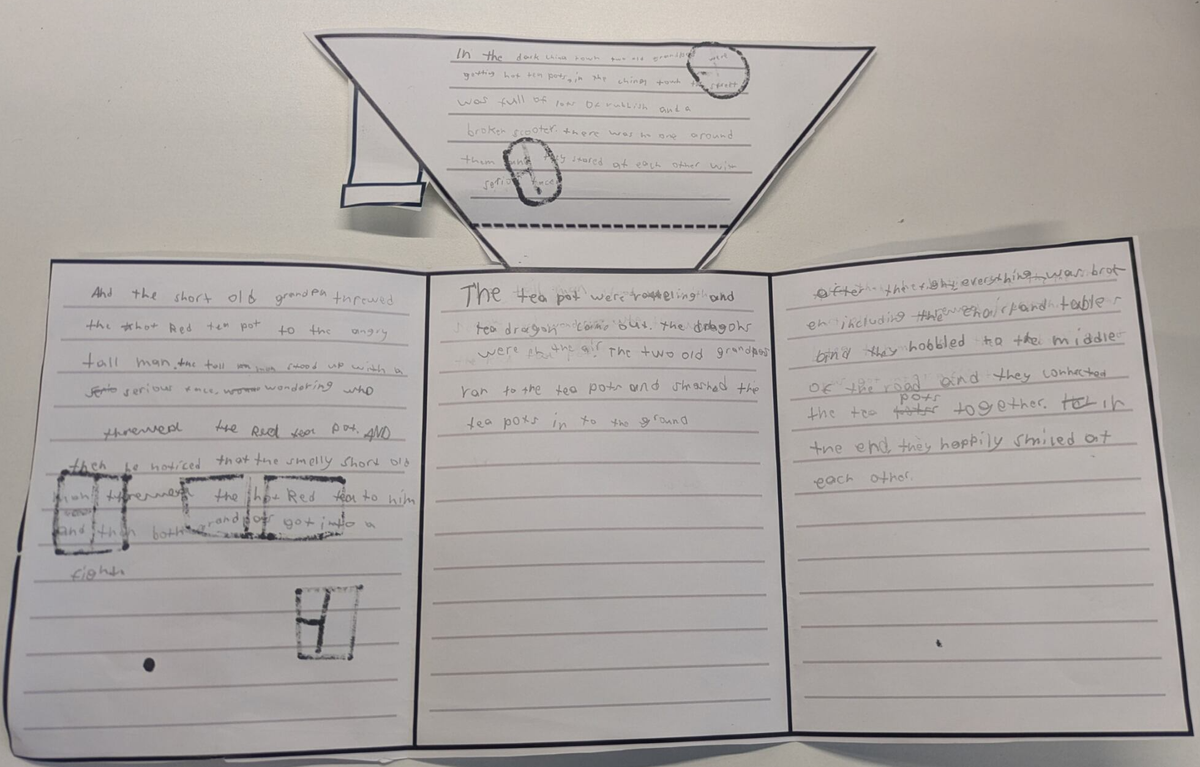 In the dark china town two old grandpas
gotting hot tea pots in the china town street
was full of of rubbish and a
broken scooter. there was no one around
them and they stared at each other with
serious faces
And the short old grandpa threwed
the hot Red tea pot to the angry
tall man. the tall man stood up with a
serious face. wondering who
threwed the Red tea pot. AND
then he noticed that the smelly short old
man threwed the hot Red tea to him
and then both grandpas got into a
fight
The tea pot were ratteling and
tea dragon came out. the dragons
were in the air. The two old grandpas
ran to the tea pots and smashed the
tea pots in to the ground
after the fight everything was brok
en including the chairs and tables
and they hobbled to the middle
of the road and they connected
the tea pots together. in
the end they happily smiled at
each other.